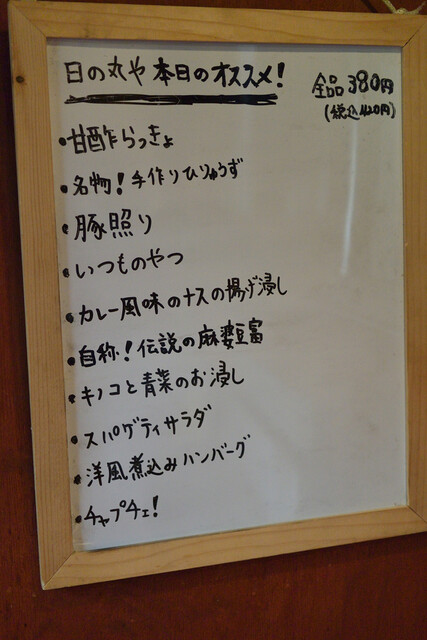 日の丸や 本日のオススメ!
全品380円
(税込420円)
・甘酢らっきょ
・名物!手作りひりゅうず
・豚照り
・いつものやつ
・カレー風味のナスの揚げ浸し
・自称!伝説の麻婆豆富
・キノコと青菜のお浸し
・スパゲティサラダ
・洋風煮込みハンバーグ
・チャプチェ!